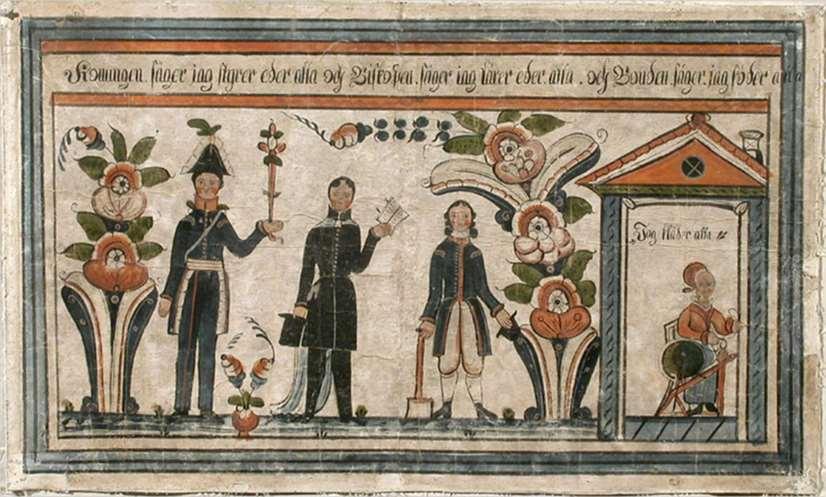 Konungen. säger iag styrer eder alla och Biskopen. säger iag lärer eder. alla. och Bonden säger. iag föder alla
Jag kläder alla